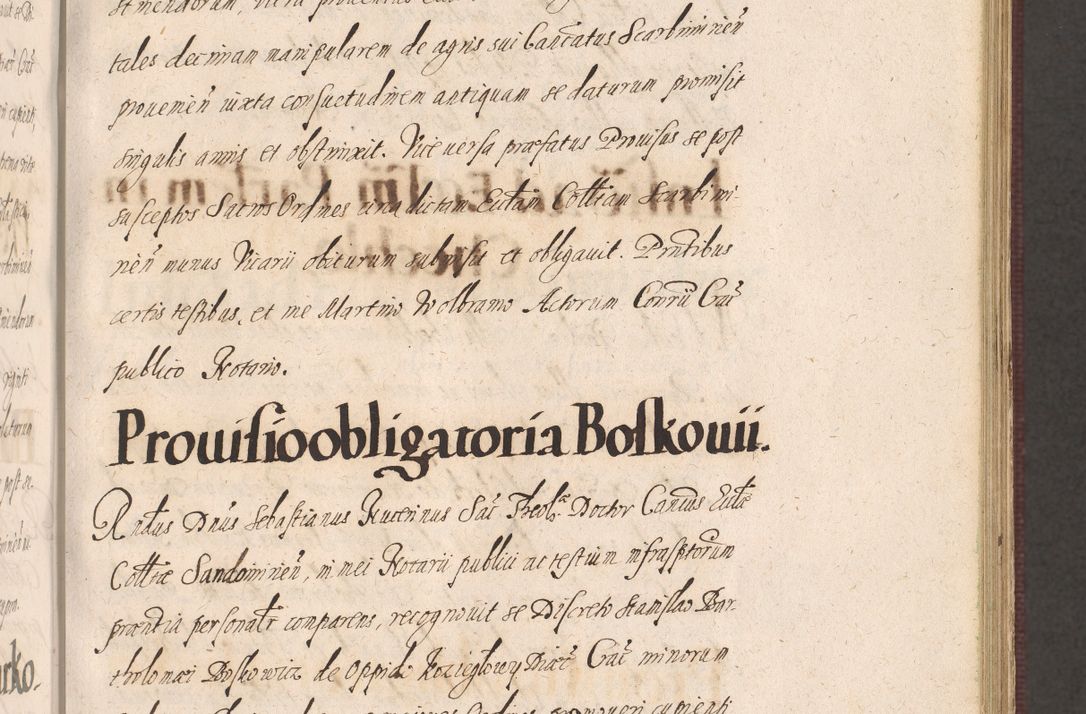 tales decimam manipularem de agris sui Canc̃atus Scarbimirieñ
proueñien iuxta consuetudinem antiquam se daturum promisit
singulis annis et obstrinxit. Vice uersa præfatus Prouisus se post
susceptos Sacros Ordines circa dictam Ecclãm Collãm Scarbimi-
rieñ munus Vicarii obiturum submisit et obligauit. Pñtibus
certis testibus, et me Martino Wolbramo Actorum Consrii Crac̃
publico Notario.
Prouisio obligatoria Boskouii.
Rndus Dnus Sebastianus Nucerinus Sac̃ Theolæ Doctor Canĉus Eccłæ
Collæ Sandomirieñ, in mei Notarii publici ac testium infrasptorum
præntia personalr comparens, recognouit se Discreto Stanislao Bar-
tholomæi Boskowicz de Oppido Kozieglowy Diæc̃ Crac̃ minorum